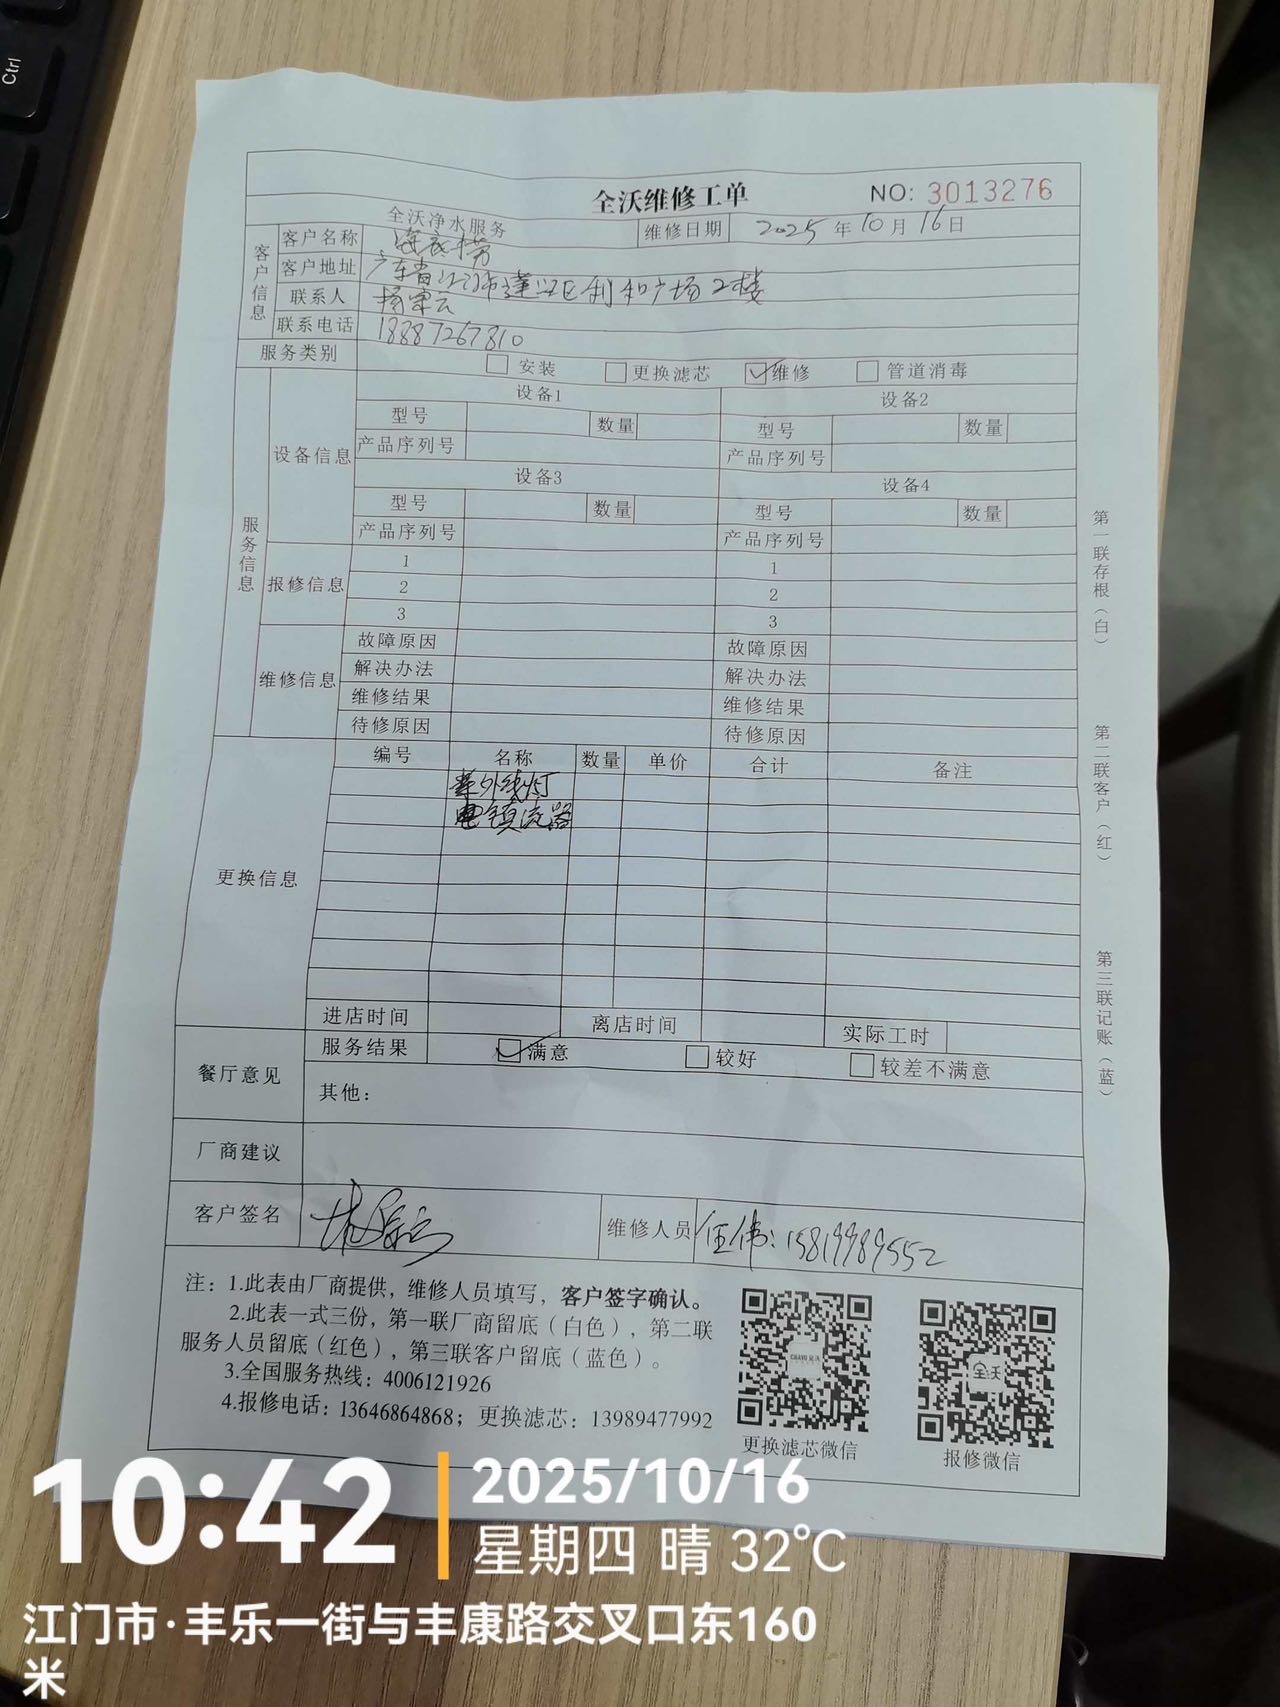 Ctrl
全沃维修工单 NO: 3013276
全沃净水服务 维修日期 2025年10月16日
客户信息
客户名称 海底捞
客户地址 广东省江门市蓬江区利和广场2楼
联系人
联系电话 18887267810
服务类别 安装 更换滤芯 维修 管道消毒
服务信息
设备信息
设备1 设备2
型号 数量 型号 数量
产品序列号 产品序列号
设备3 设备4
型号 数量 型号 数量
产品序列号 产品序列号
报修信息
1 1
2 2
3 3
维修信息
故障原因 故障原因
解决办法 解决办法
维修结果 维修结果
待修原因 待修原因
更换信息
编号 名称 数量 单价 合计 备注
紫外线灯
电镇流器
进店时间 离店时间 实际工时
餐厅意见
服务结果 满意 较好 较差不满意
其他：
厂商建议
客户签名 维修人员 任伟：15819989552
注：1.此表由厂商提供，维修人员填写，客户签字确认。
2.此表一式三份，第一联厂商留底（白色），第二联
服务人员留底（红色），第三联客户留底（蓝色）。
3.全国服务热线：4006121926
4.报修电话：13646864868；更换滤芯：13989477992
更换滤芯微信 报修微信
全沃
第一联存根（白）
第二联客户（红）
第三联记账（蓝）
10:42
2025/10/16
星期四 晴 32℃
江门市·丰乐一街与丰康路交叉口东160
米